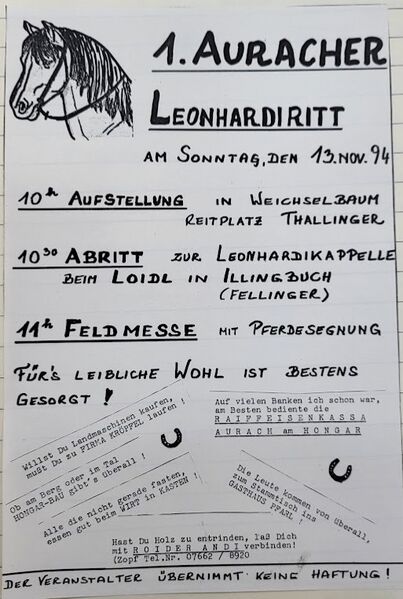 1. AURACHER
LEONHARDIRITT
AM SONNTAG, DEN 13. NOV. 94
10h AUFSTELLUNG IN WEICHSELBAUM
REITPLATZ THALLINGER
10 30 ABRITT ZUR LEONHARDIKAPPELLE
BEIM LOIDL IN ILLINGBUCH
(FELLINGER)
11h FELDMESSE MIT PFERDESEGNUNG
FÜR'S LEIBLICHE WOHL IST BESTENS
GESORGT!
Willst Du Landmaschinen kaufen,
mußt Du zu FIRMA KRÖPFEL laufen !
Auf vielen Banken ich schon war,
am Besten bediente die
RAIFFEISENKASSA
AURACH am HONGAR
Ob am Berg oder im Tal
HONGAR-BAU gibt's überall !
Alle die nicht gerade fasten,
essen gut beim WIRT in KASTEN !
Die Leute kommen von überall,
zum Stammtisch ins
GASTHAUS PFARL !
Hast Du Holz zu entrinden, laß Dich
mit ROIDER ANDI verbinden!
(Zopf Tel.Nr. 07662 / 8920
DER VERANSTALTER ÜBERNIMMT KEINE HAFTUNG!